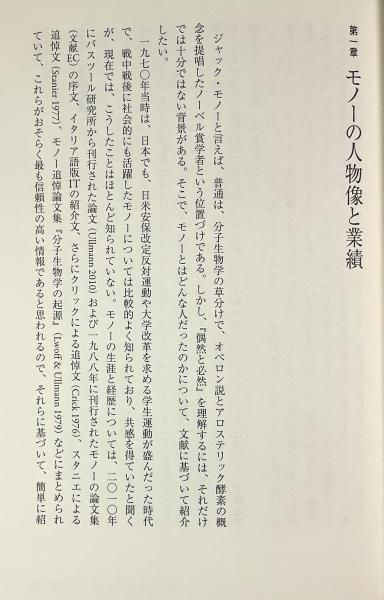 第一章 モノーの人物像と業績
ジャック・モノーと言えば、普通は、分子生物学の草分けで、オペロン説とアロステリック酵素の概
念を提唱したノーベル賞学者という位置づけである。しかし、『偶然と必然』を理解するには、それだけ
では十分ではない背景がある。そこで、モノーとはどんな人だったのかについて、文献に基づいて紹介
したい。
一九七〇年当時は、日本でも、日米安保改定反対運動や大学改革を求める学生運動が盛んだった時代
で、戦中戦後に社会的にも活躍したモノーについては比較的よく知られており、共感を得ていたと聞く
が、現在では、こうしたことはほとんど知られていない。モノーの生涯と経歴については、二〇一〇年
にパスツール研究所から刊行された論文 (Ullmann 2010) および一九八八年に刊行されたモノーの論文集
(文献EC) の序文、イタリア語版ITの紹介文、さらにクリックによる追悼文 (Crick 1976)、スタニエによる
追悼文 (Stanier 1977)、モノー追悼論文集『分子生物学の起源』(Lwoff & Ullmann 1979) などにまとめられ
ていて、これらがおそらく最も信頼性の高い情報であると思われるので、それらに基づいて、簡単に紹